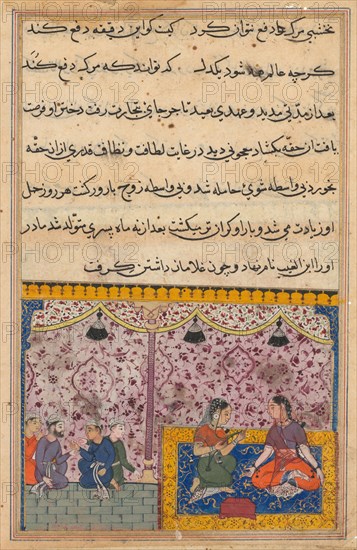 نخشبی مرک چو دفع نتوان کرد کیت کو این دقیقه دفع کند
کرچه عالم همه شود یکدل که تواند که مرک دفع کند
بعد از مدتی مدید و عهدی بعید تاجر جای تجارت رفت دختر او فرصت
یافت از حقه بکشاد معجونی دید در غایت لطافت و نظافت قدری از ان حقه
بخورد بی واسطه شوی حامله شد و بی واسطه زوج بارور کشت هر روز حمل
او زیادت می شد و بار او کران تر می کشت بعد از نه ماه پسری متولد شد مادر
او را ابن الغیب نام نهاد و چون غلامان داشتن کرفت